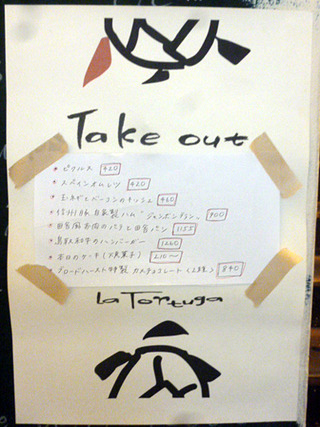 Take out
ピクルス 420
スペインオムレツ 420
玉ねぎとベーコンのキッシュ 420
信州豚 自家製ハム "ジャンボンブラン" 900
田舎風お肉のパテと田舎パン 1155
鳥取和牛のハンバーガー 1260
本日のケーキ(焼菓子) 210〜
ブロードハースト特製 カメチョコレート(2種) 840
La Tortuga